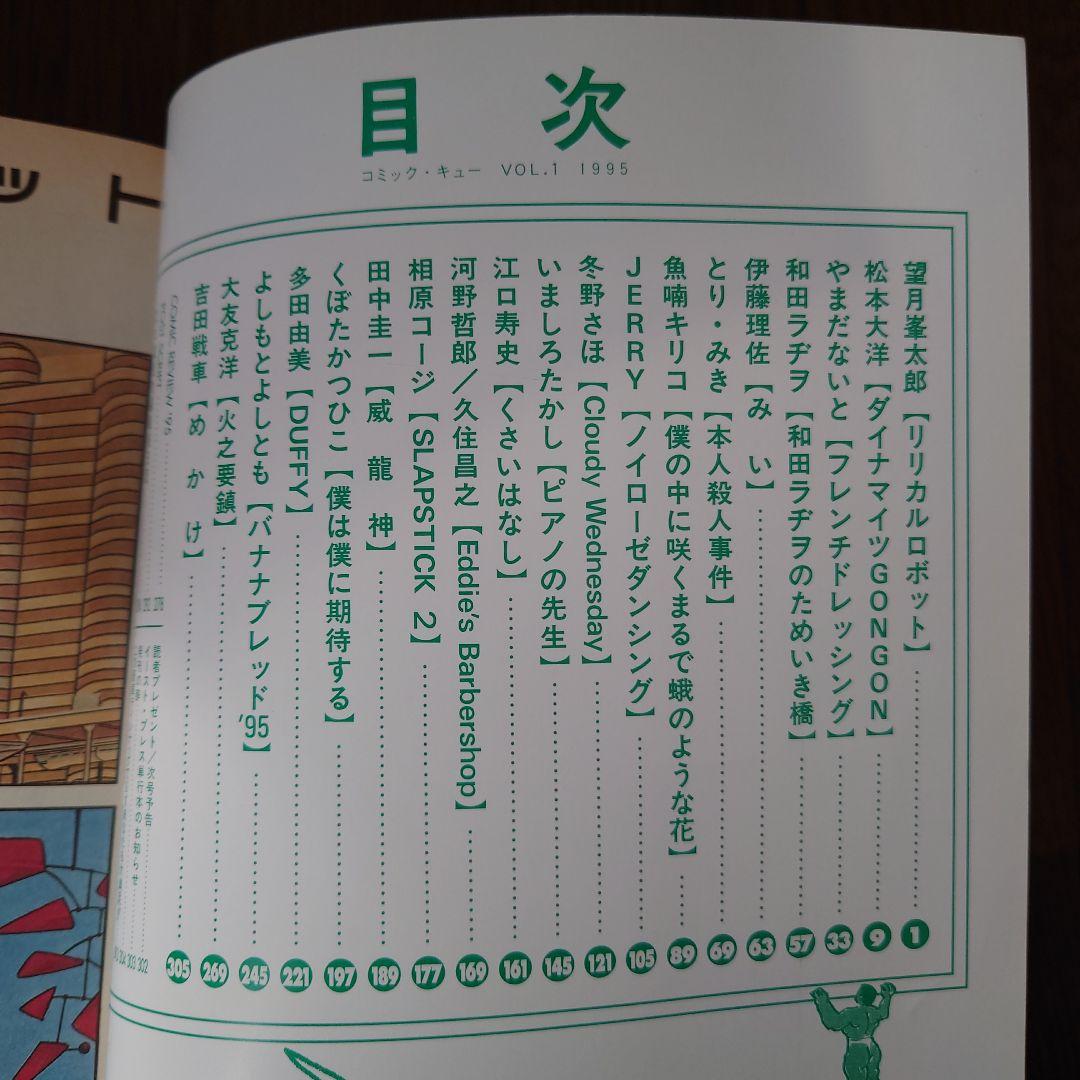 ット
目次
コミック・キュー VOL.1 1995
望月峯太郎【リリカルロボット】 1
松本大洋【ダイナマイツGONGON】 9
やまだないと【フレンチドレッシング】 33
和田ラヂヲ【和田ラヂヲのためいき橋】 57
伊藤理佐【み い】 63
とり・みき【本人殺人事件】 69
魚喃キリコ【僕の中に咲くまるで蛾のような花】 89
JERRY【ノイローゼダンシング】 105
冬野さほ【Cloudy Wednesday】 121
いましろたかし【ピアノの先生】 145
江口寿史【くさいはなし】 161
河野哲郎／久住昌之【Eddie's Barbershop】 169
相原コージ【SLAPSTICK 2】 177
田中圭一【威龍神】 189
くぼたかつひこ【僕は僕に期待する】 197
多田由美【DUFFY】 221
よしもとよしとも【バナナブレッド'95】 245
大友克洋【火之要鎮】 269
吉田戦車【めかけ】 305
COMIC REVIEW '95
読者プレゼント／次号予告 302
イースト・プレス単行本のお知らせ 303